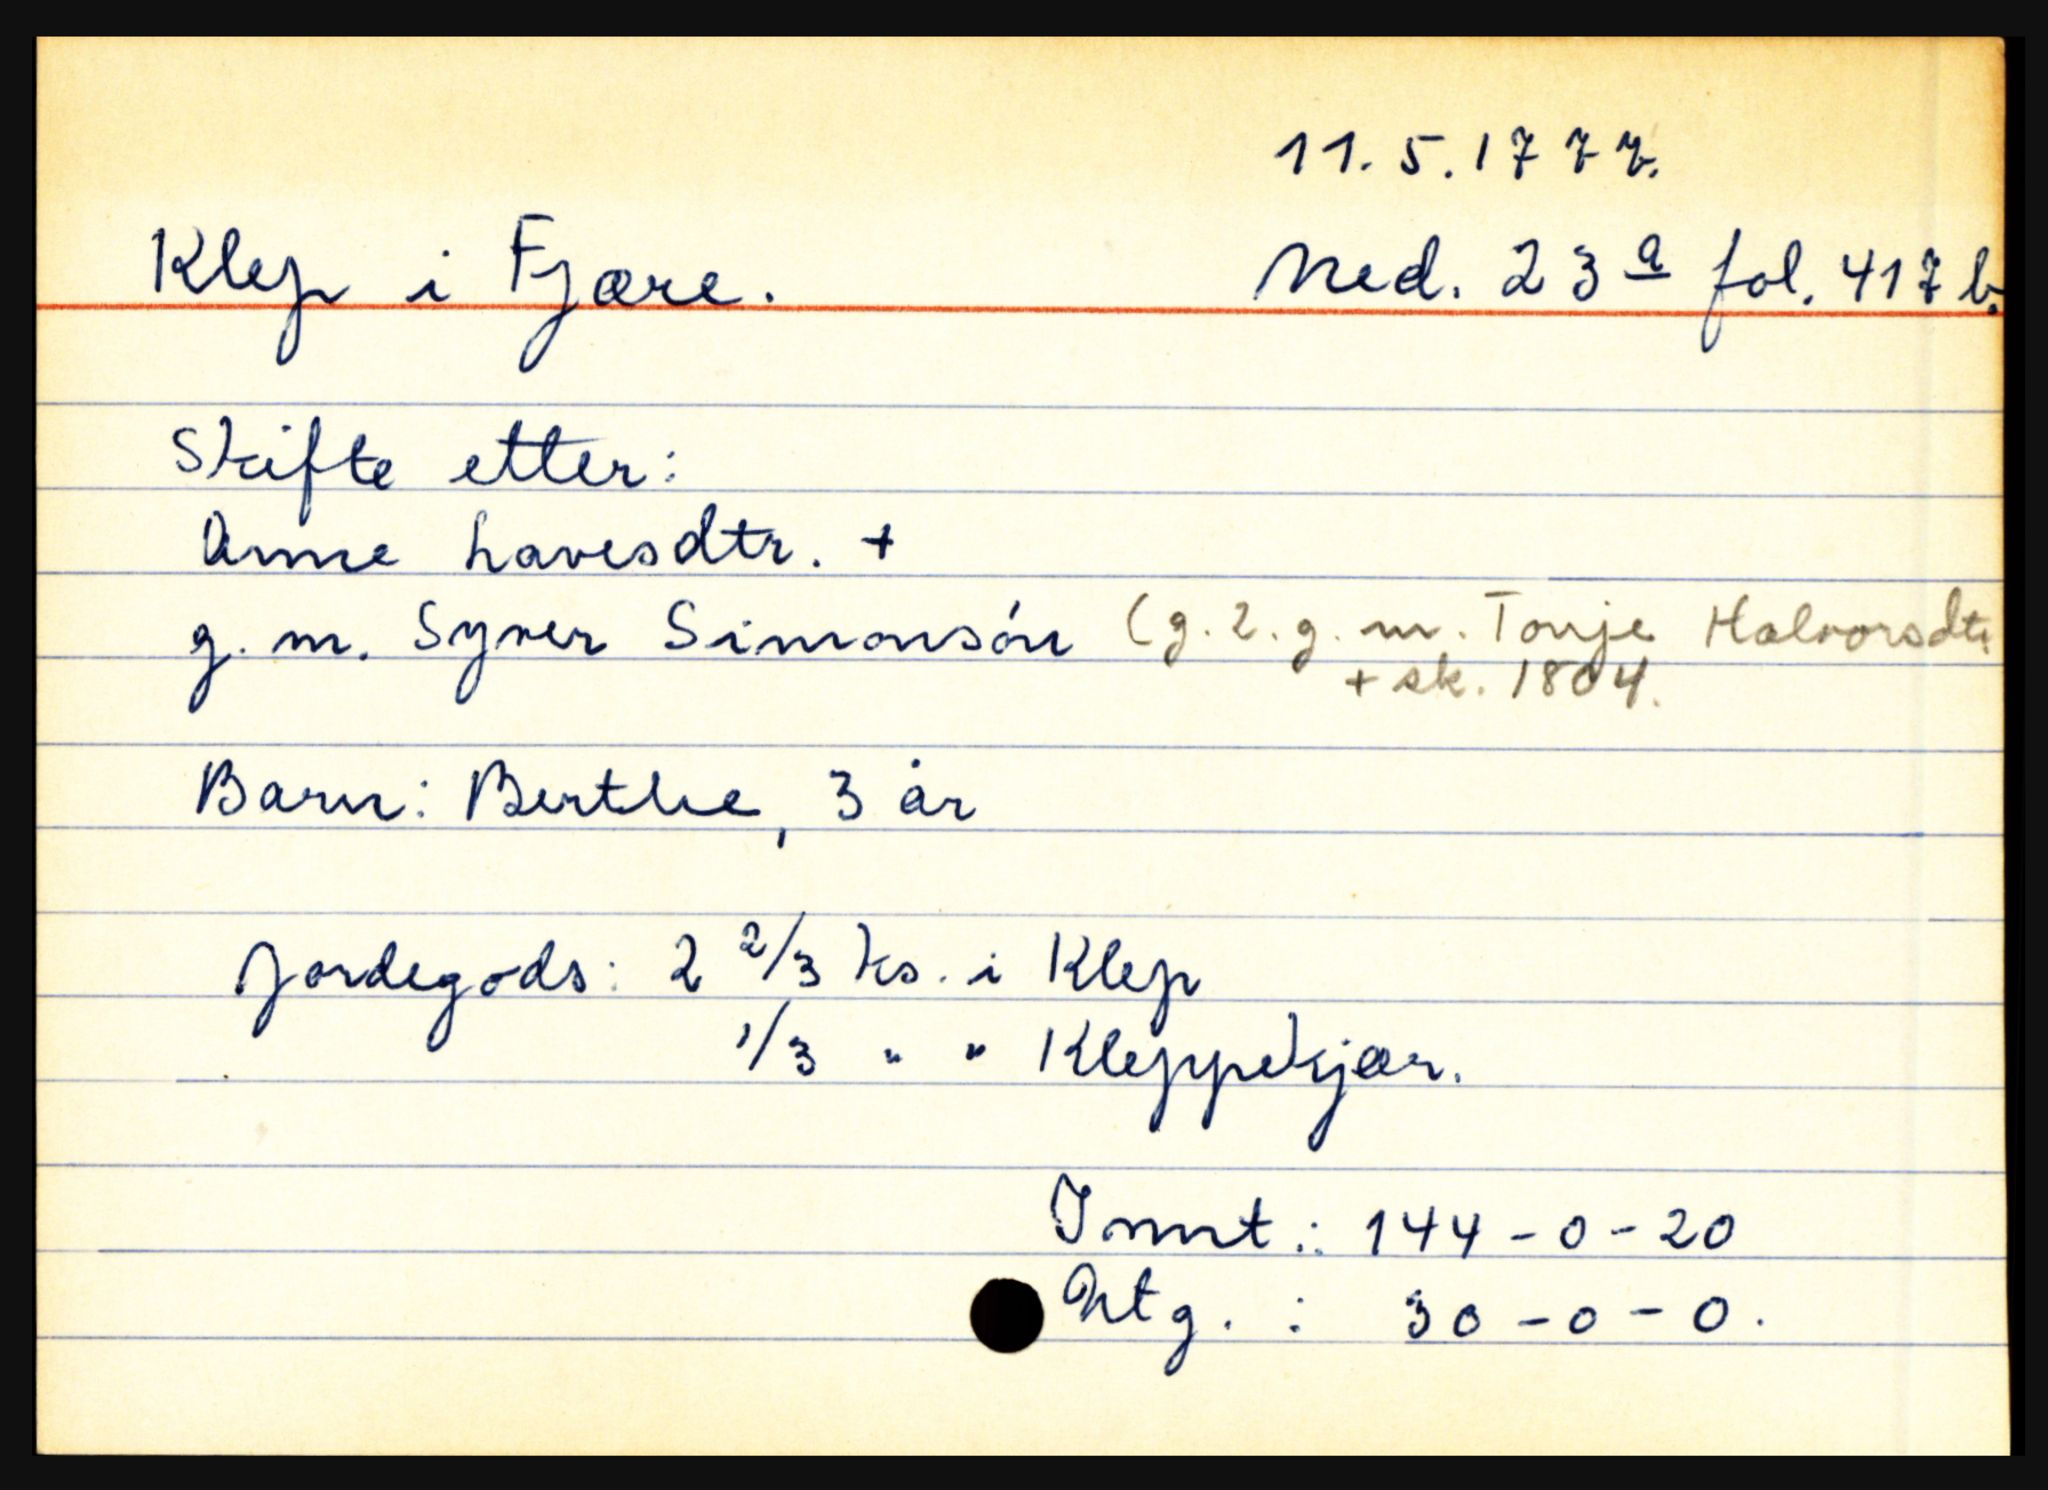 11.5.1777.
Klep i Fjære. Ned. 23 a fol. 417 b.
Skifte etter:
Anne Lavesdtr. +
g. m. Syver Simonsón (g. 2. g. m. Tonje Halvorsdtr
+ sk. 1804.
Barn: Berthe, 3 år
Jordegods: 2 2/3 ks. i Klep
1/3 " " Kleppekjær.
Innt.: 144-0-20
Utg. : 30-0-0.